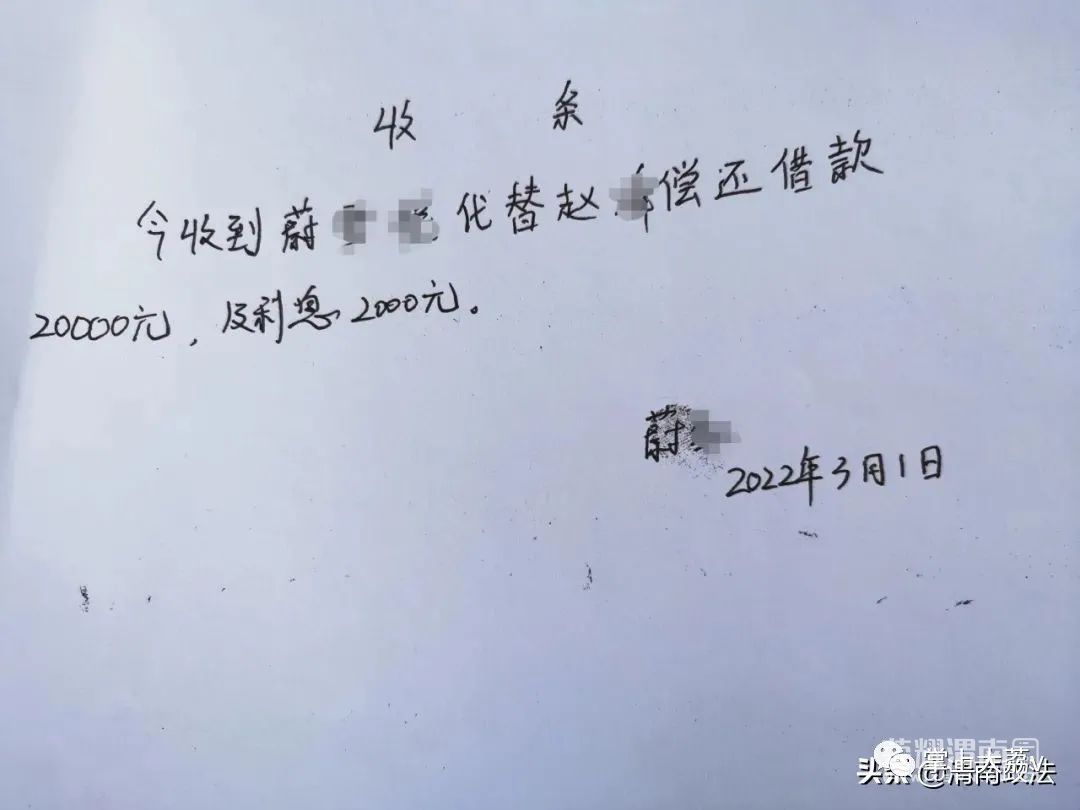 收 条
今收到蔚 代替赵 偿还借款
20000元，及利息2000元。
蔚
2022年3月1日
掌上大荔
头条@渭南政法